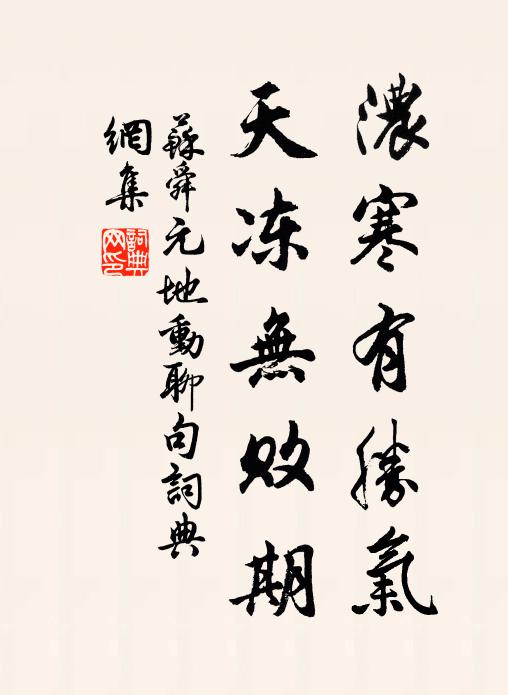 濃寒有勝氣
天冻無败期
蘇舜元地動聊句詞典
網集
詞典
网印